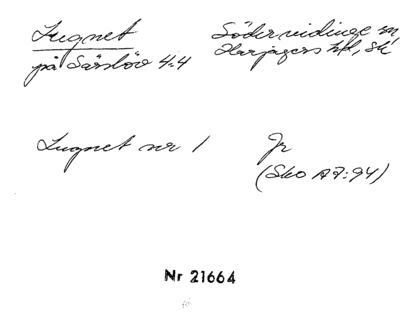 Lugnet
på Särslöv 4:4
Södervidinge sn
Harjagers hd, Sk
Lugnet nr 1
Jr
(Sko A7:94)
Nr 21664